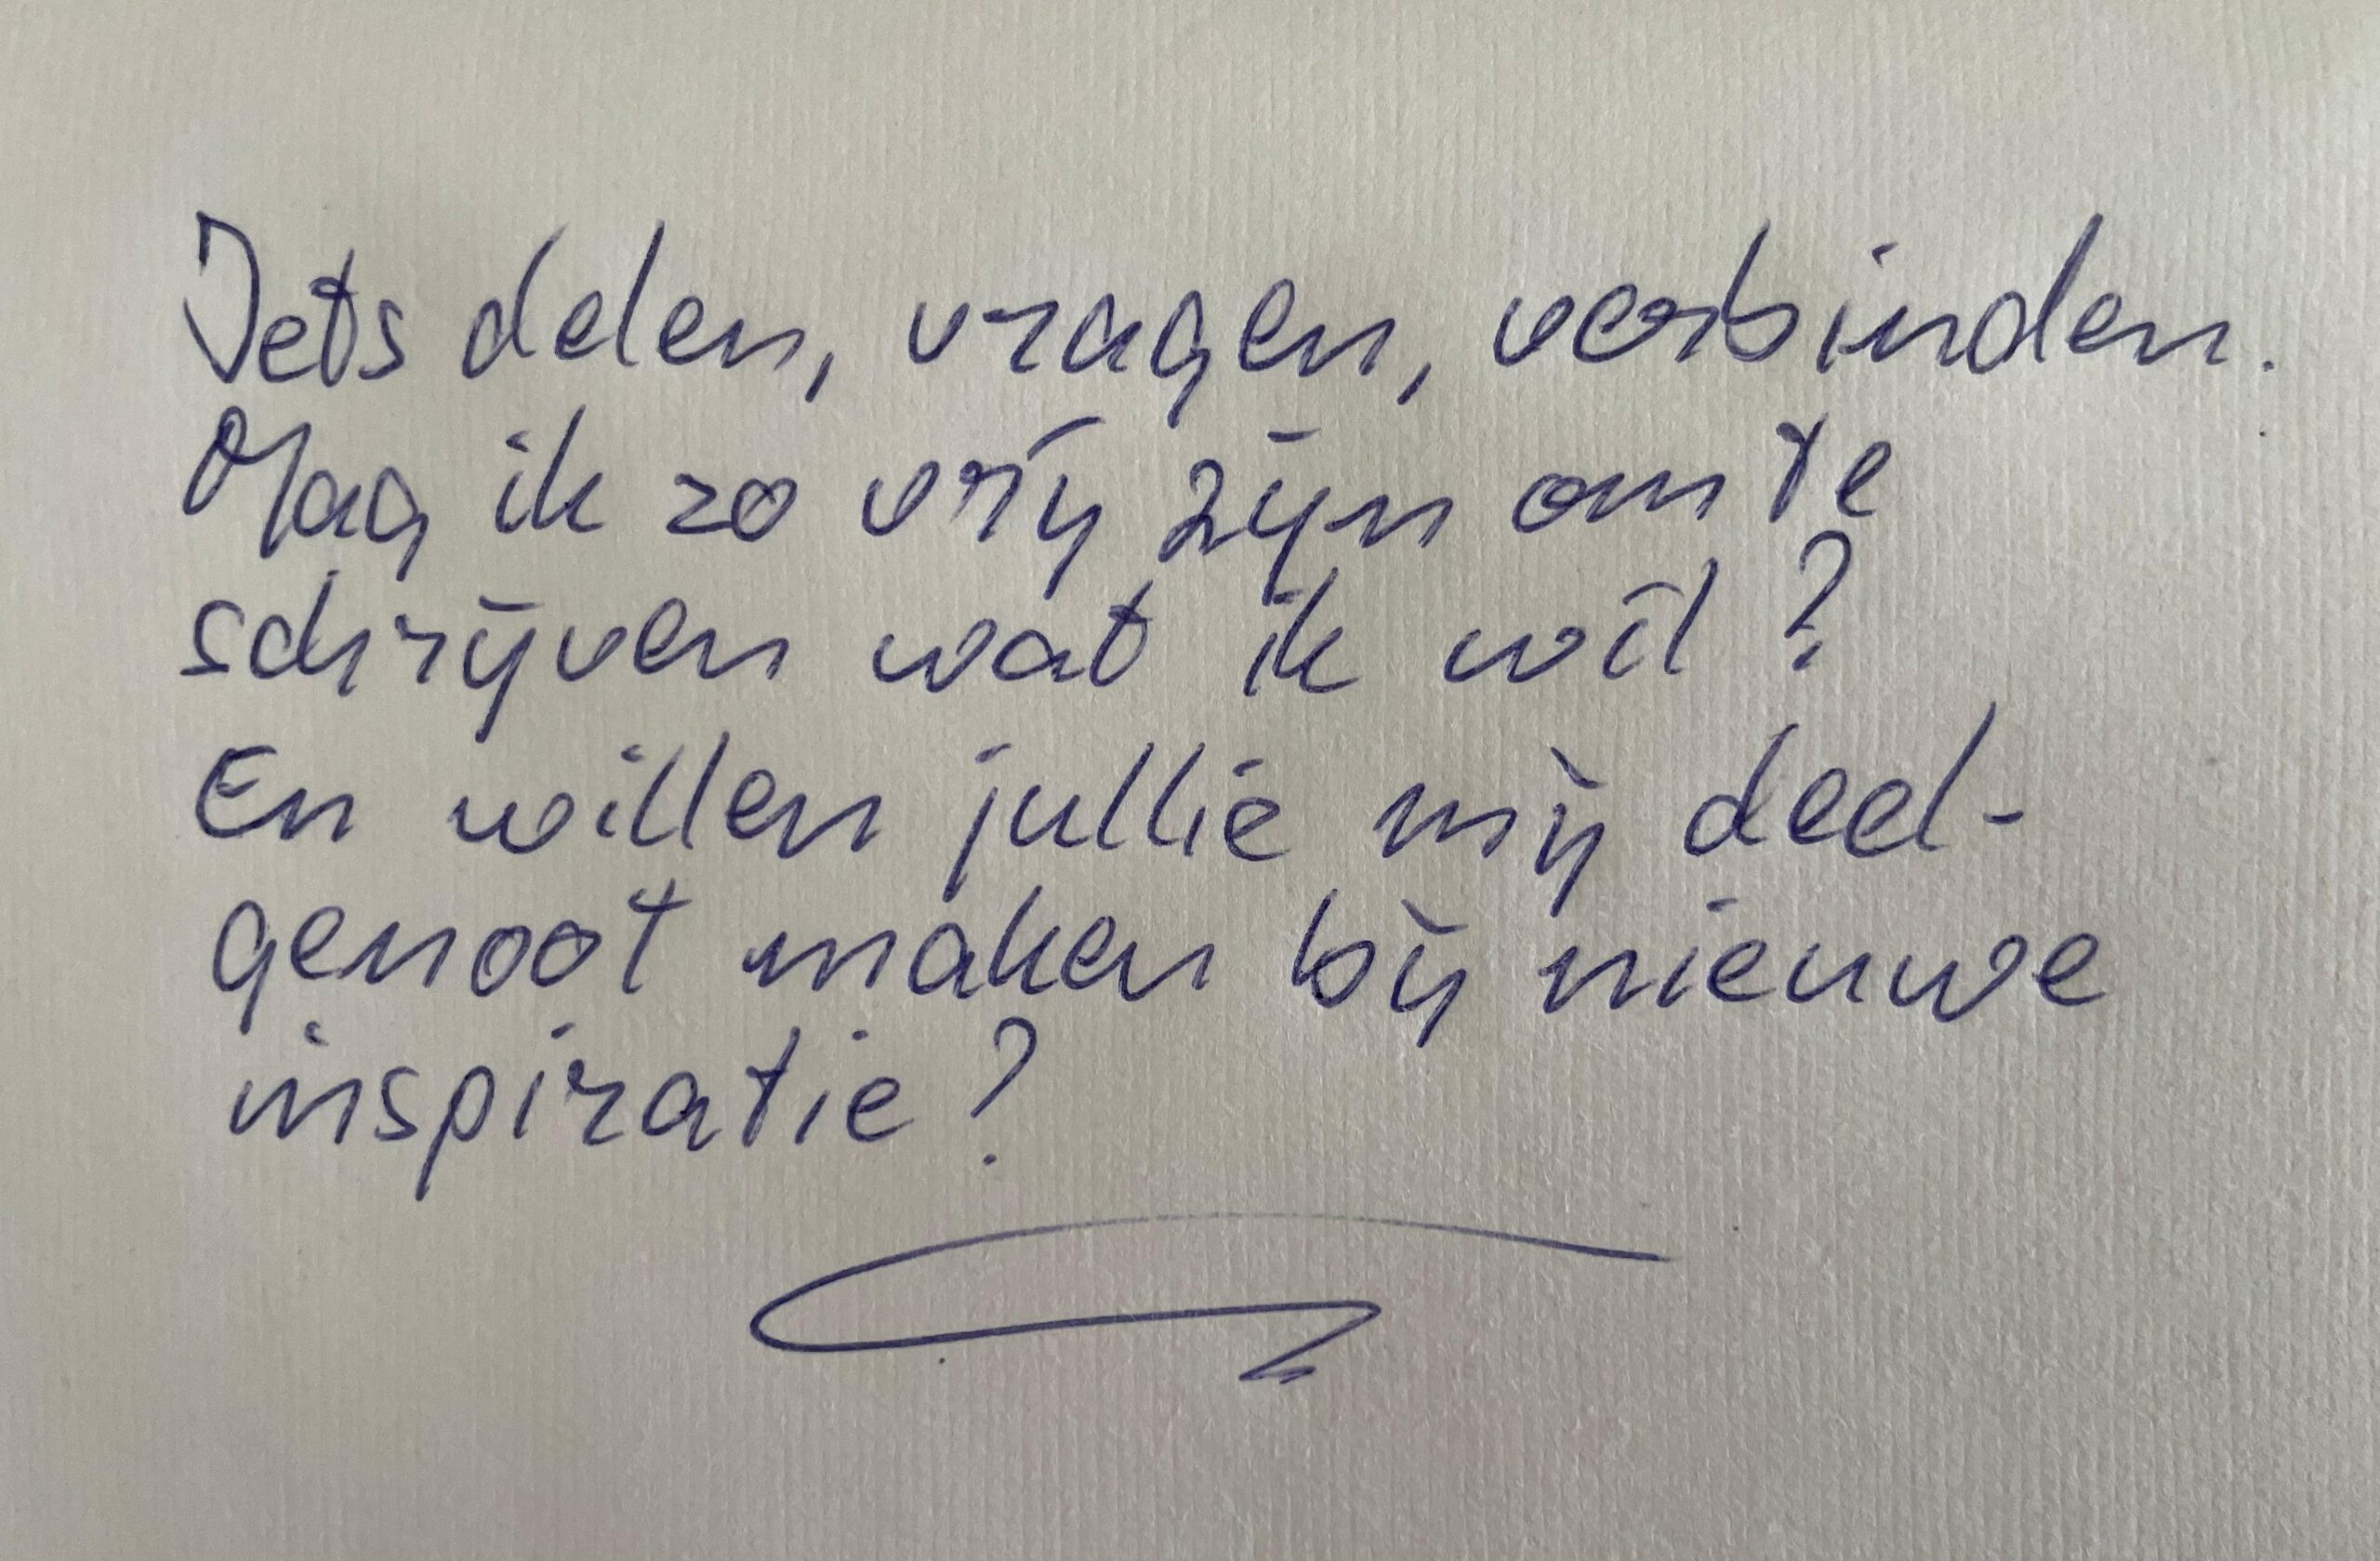 Iets delen, vragen, verbinden.
Mag ik zo vrij zijn om te
schrijven wat ik wil?
En willen jullie mij deel-
genoot maken bij nieuwe
inspiratie?